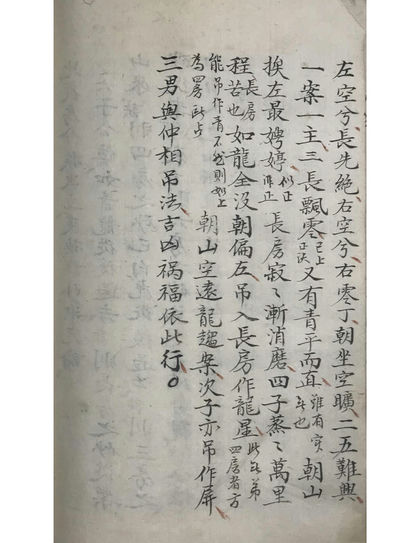 左空兮長先絶右空兮右零丁朝坐空曠二五難興
一案一主三長飄零已上正誤又有青平而直雖有实無也朝山
挨左最娉婷似正非正長房寂〻漸消磨四子蒸〻萬里
程長房苦也如龍全没朝偏左吊入長房作龍星此無弟四房者方
能吊作青不然則如上為四房所占朝山空遠龍趨案次子亦吊作屏
三男與仲相吊法吉凶祸福依此行。